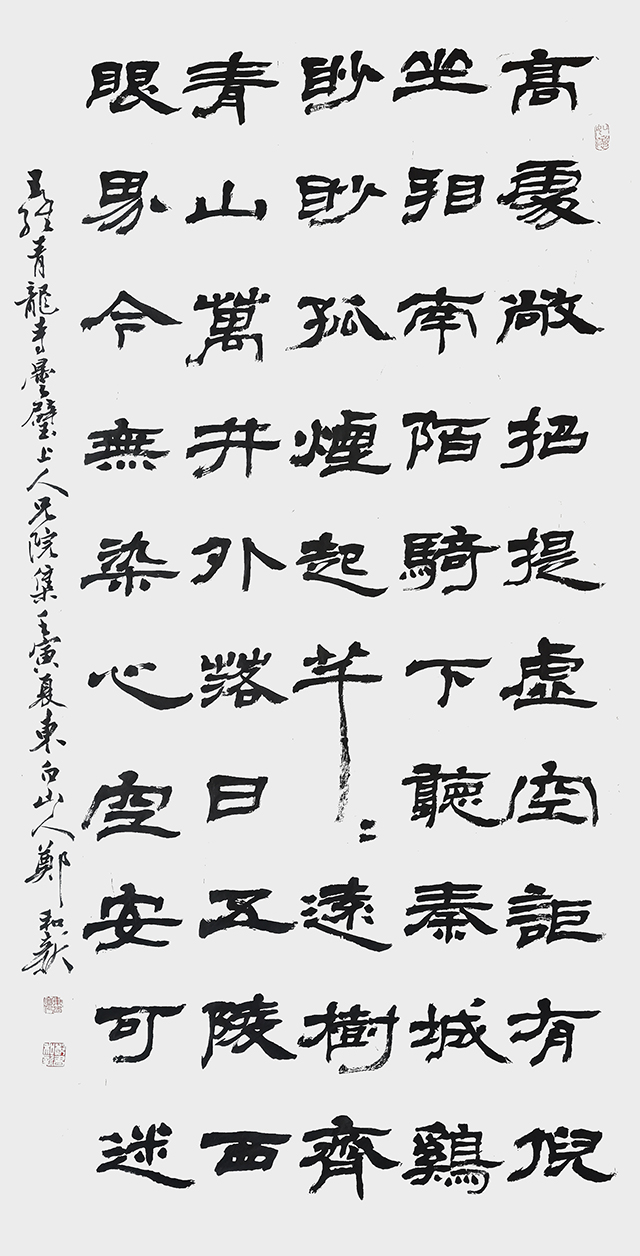 高處敞招提虛空詎有倪
坐相南陌騎下聽秦城鷄
眇眇孤煙起芊〻遠樹齊
青山萬井外落日五陵西
眼界今無染心空安可迷
王維青龍寺曇璧上人兄院集壬寅夏東白山人鄭和新